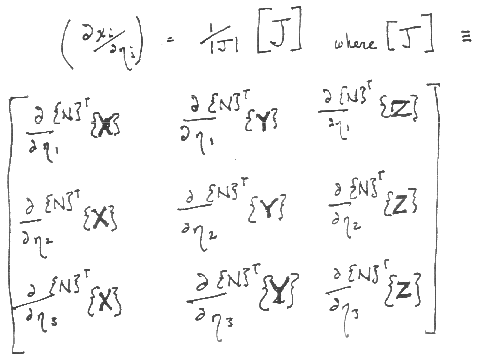 (∂xi/∂ηj) = 1/|J| [J] where [J] ≡
∂{N}ᵀ/∂η1 {X} ∂{N}ᵀ/∂η1 {Y} ∂{N}ᵀ/∂η1 {Z}
∂{N}ᵀ/∂η2 {X} ∂{N}ᵀ/∂η2 {Y} ∂{N}ᵀ/∂η2 {Z}
∂{N}ᵀ/∂η3 {X} ∂{N}ᵀ/∂η3 {Y} ∂{N}ᵀ/∂η3 {Z}